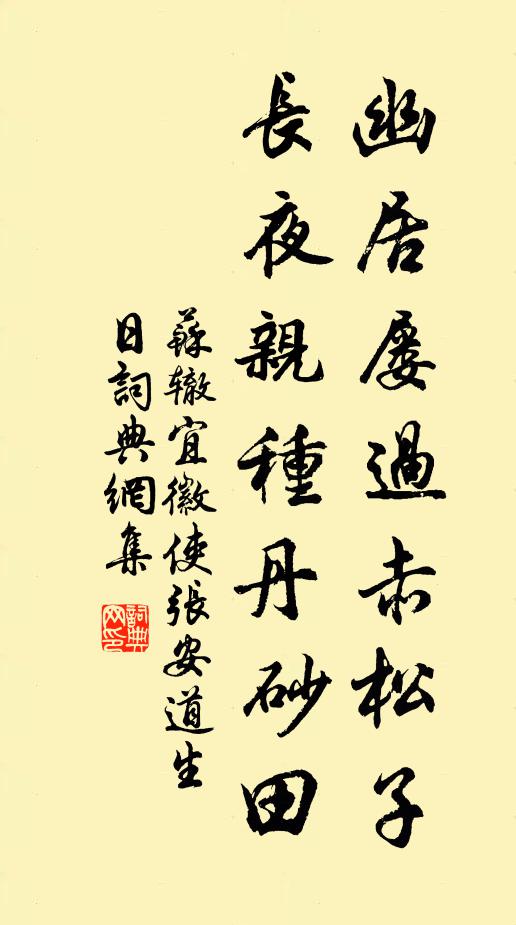 幽居屢過赤松子
長夜親種丹砂田
蘇辙宜徽使張安道生
日詞典網集
詞典网印